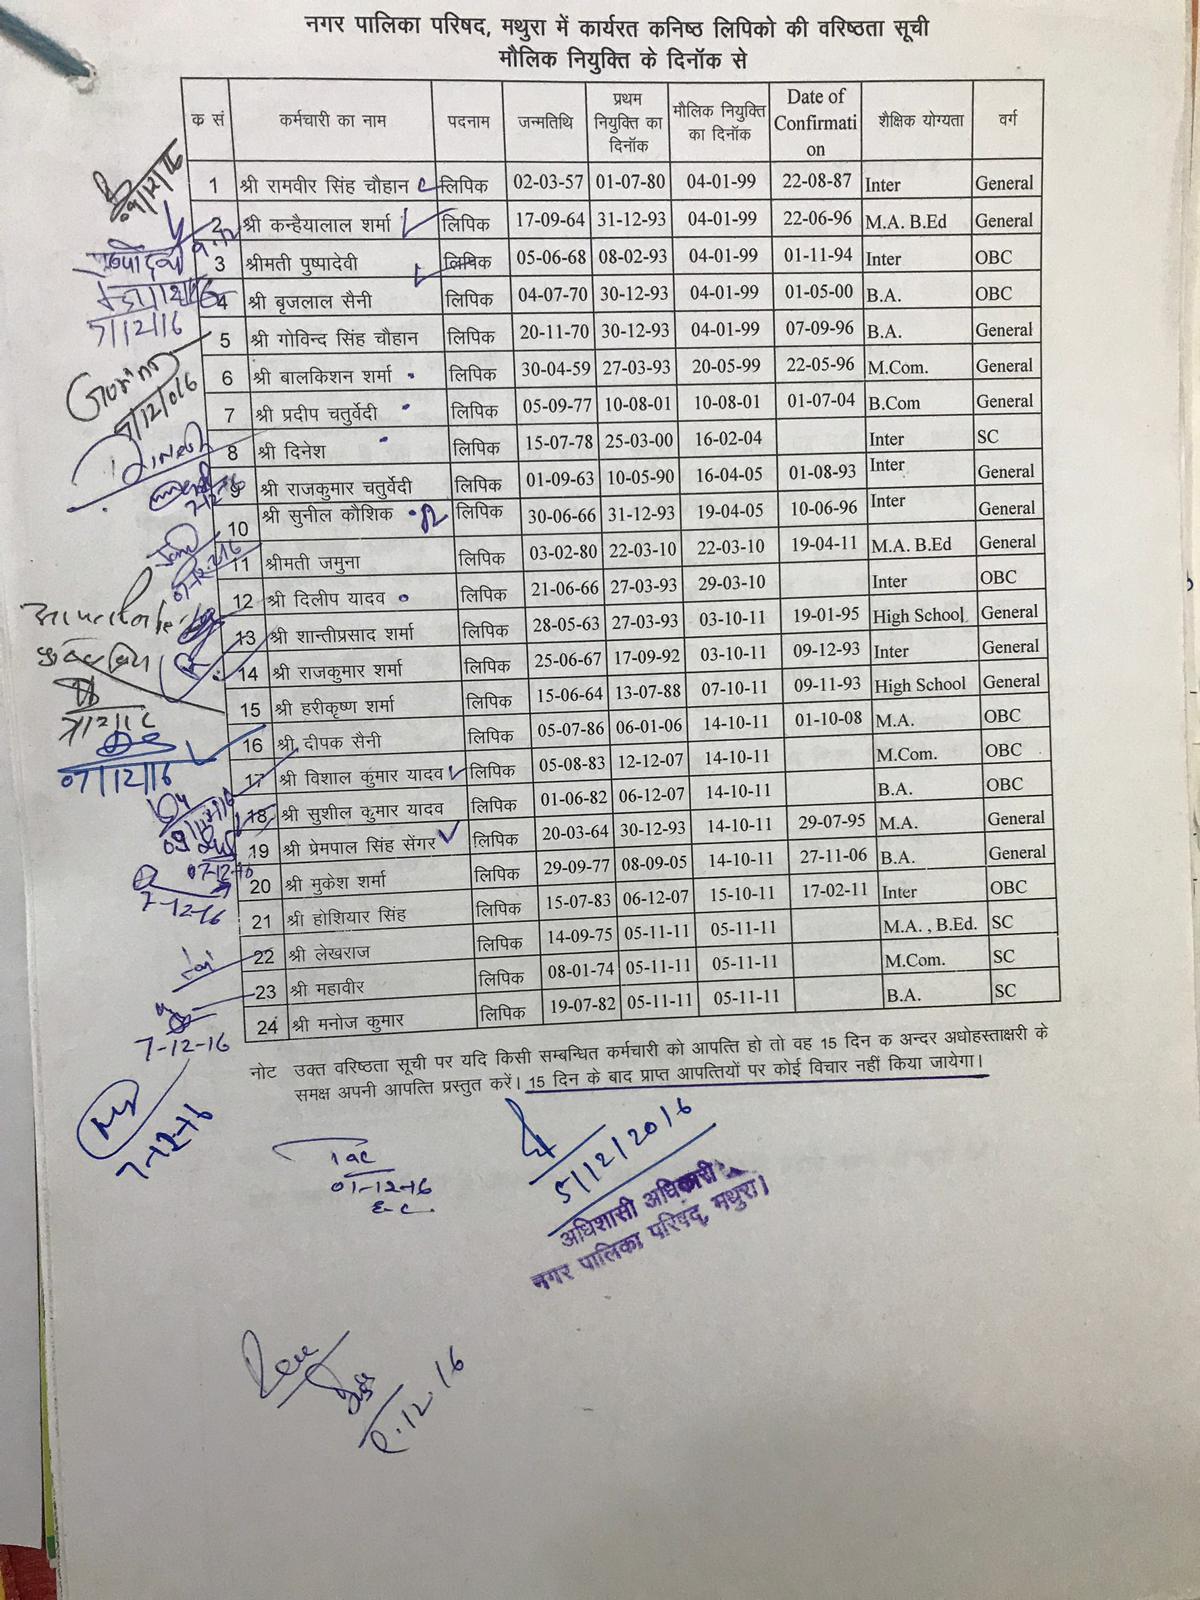 नगर पालिका परिषद, मथुरा में कार्यरत कनिष्ठ लिपिको की वरिष्ठता सूची
मौलिक नियुक्ति के दिनॉक से
क सं कर्मचारी का नाम पदनाम जन्मतिथि प्रथम नियुक्ति का दिनॉक मौलिक नियुक्ति का दिनॉक Date of Confirmati on शैक्षिक योग्यता वर्ग
1 श्री रामवीर सिंह चौहान लिपिक 02-03-57 01-07-80 04-01-99 22-08-87 Inter General
2 श्री कन्हैयालाल शर्मा लिपिक 17-09-64 31-12-93 04-01-99 22-06-96 M.A. B.Ed General
3 श्रीमती पुष्पादेवी लिपिक 05-06-68 08-02-93 04-01-99 01-11-94 Inter OBC
4 श्री बृजलाल सैनी लिपिक 04-07-70 30-12-93 04-01-99 01-05-00 B.A. OBC
5 श्री गोविन्द सिंह चौहान लिपिक 20-11-70 30-12-93 04-01-99 07-09-96 B.A. General
6 श्री बालकिशन शर्मा लिपिक 30-04-59 27-03-93 20-05-99 22-05-96 M.Com. General
7 श्री प्रदीप चतुर्वेदी लिपिक 05-09-77 10-08-01 10-08-01 01-07-04 B.Com General
8 श्री दिनेश लिपिक 15-07-78 25-03-00 16-02-04 Inter SC
9 श्री राजकुमार चतुर्वेदी लिपिक 01-09-63 10-05-90 16-04-05 01-08-93 Inter General
10 श्री सुनील कौशिक लिपिक 30-06-66 31-12-93 19-04-05 10-06-96 Inter General
11 श्रीमती जमुना लिपिक 03-02-80 22-03-10 22-03-10 19-04-11 M.A. B.Ed General
12 श्री दिलीप यादव लिपिक 21-06-66 27-03-93 29-03-10 Inter OBC
13 श्री शान्तीप्रसाद शर्मा लिपिक 28-05-63 27-03-93 03-10-11 19-01-95 High School General
14 श्री राजकुमार शर्मा लिपिक 25-06-67 17-09-92 03-10-11 09-12-93 Inter General
15 श्री हरीकृष्ण शर्मा लिपिक 15-06-64 13-07-88 07-10-11 09-11-93 High School General
16 श्री दीपक सैनी लिपिक 05-07-86 06-01-06 14-10-11 01-10-08 M.A. OBC
17 श्री विशाल कुमार यादव लिपिक 05-08-83 12-12-07 14-10-11 M.Com. OBC
18 श्री सुशील कुमार यादव लिपिक 01-06-82 06-12-07 14-10-11 B.A. OBC
19 श्री प्रेमपाल सिंह सेंगर लिपिक 20-03-64 30-12-93 14-10-11 29-07-95 M.A. General
20 श्री मुकेश शर्मा लिपिक 29-09-77 08-09-05 14-10-11 27-11-06 B.A. General
21 श्री होशियार सिंह लिपिक 15-07-83 06-12-07 15-10-11 17-02-11 Inter OBC
22 श्री लेखराज लिपिक 14-09-75 05-11-11 05-11-11 M.A. , B.Ed. SC
23 श्री महावीर लिपिक 08-01-74 05-11-11 05-11-11 M.Com. SC
24 श्री मनोज कुमार लिपिक 19-07-82 05-11-11 05-11-11 B.A. SC
नोट उक्त वरिष्ठता सूची पर यदि किसी सम्बन्धित कर्मचारी को आपत्ति हो तो वह 15 दिन क अन्दर अधोहस्ताक्षरी के
समक्ष अपनी आपत्ति प्रस्तुत करें। 15 दिन के बाद प्राप्त आपत्तियों पर कोई विचार नहीं किया जायेगा।
7/12/16
07/12/16
07-12-16
7-12-16
7-12-16
7-12-16
5/12/2016
अधिशासी अधिकारी
नगर पालिका परिषद, मथुरा।